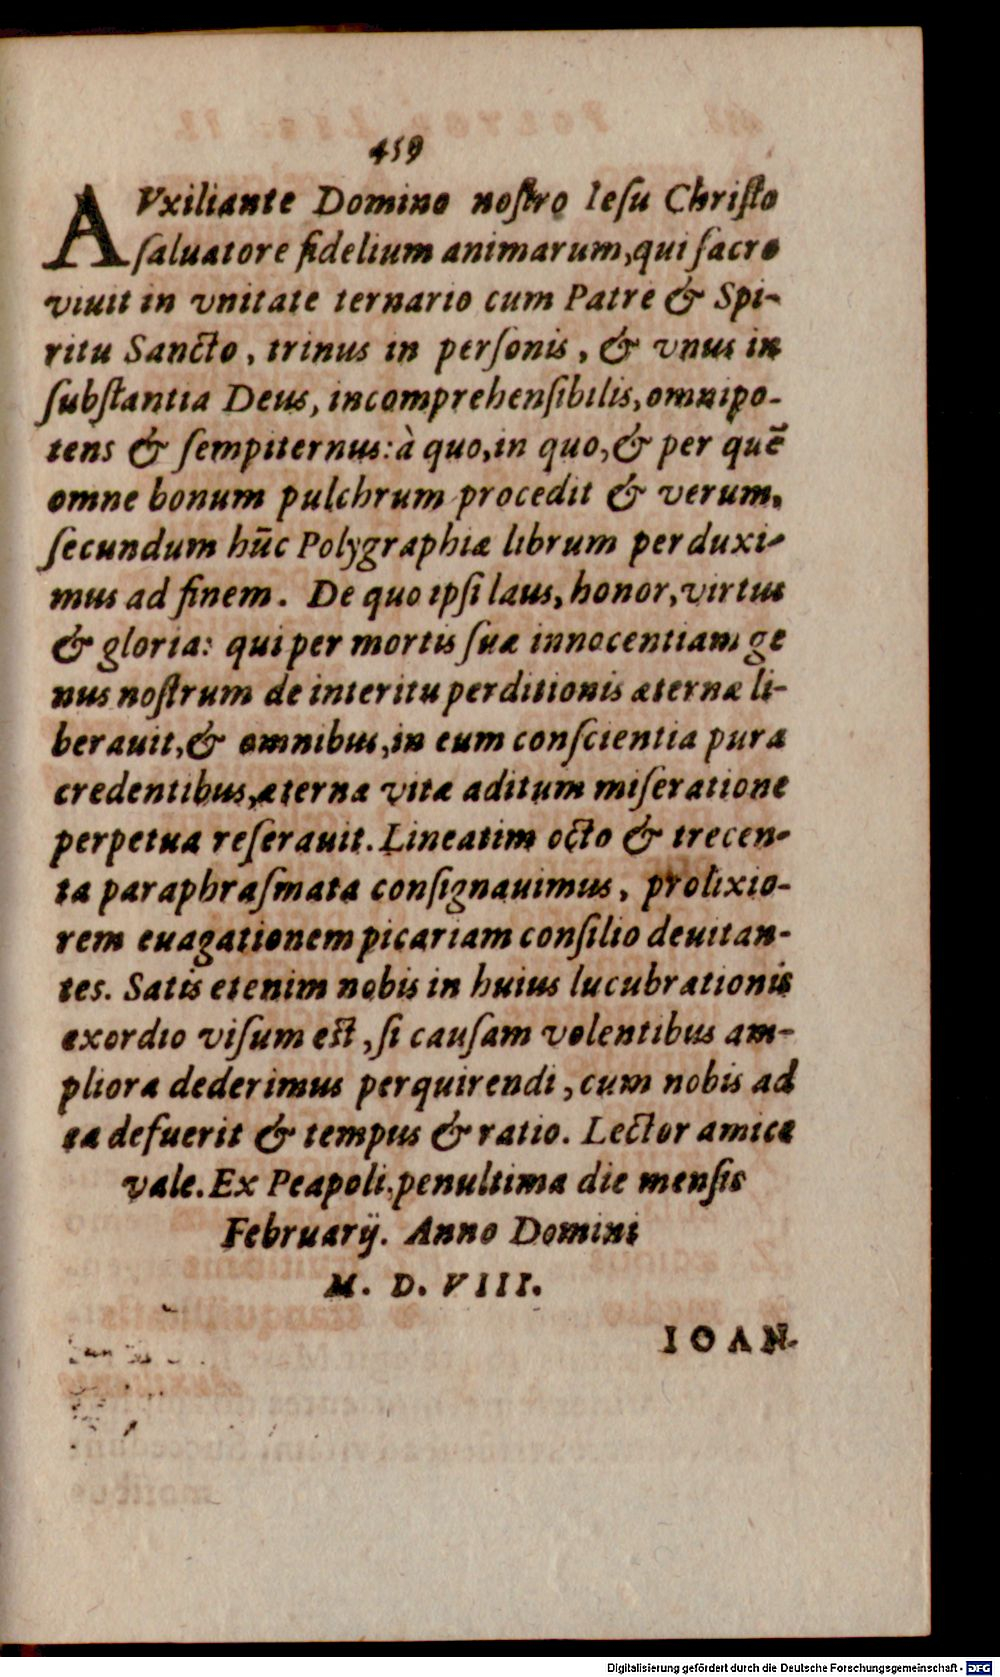 459
AVxiliante Domino noſtro Ieſu Chriſto
ſaluatore fidelium animarum, qui ſacro
viuit in vnitate ternario cum Patre & Spi-
ritu Sancto, trinus in perſonis, & vnus in
ſubſtantia Deus, incomprehenſibilis, omnipo-
tens & ſempiternus: à quo, in quo, & per quē
omne bonum pulchrum procedit & verum,
ſecundum hūc Polygraphiæ librum perduxi-
mus ad finem. De quo ipſi laus, honor, virtus
& gloria: qui per mortis ſuæ innocentiam ge
nus noſtrum de interitu perditionis æternæ li-
berauit, & omnibus, in eum conſcientia pura
credentibus, æterna vitæ aditum miſeratione
perpetua reſerauit. Lineatim octo & trecen-
ta paraphraſmata conſignauimus, prolixio-
rem euagationem picariam conſilio deuitan-
tes. Satis etenim nobis in huius lucubrationis
exordio viſum eſt, ſi cauſam volentibus am-
pliora dederimus perquirendi, cum nobis ad
ea defuerit & tempus & ratio. Lector amice
vale. Ex Peapoli, penultima die menſis
Februarij. Anno Domini
M. D. VIII.
IOAN-
Digitalisierung gefördert durch die Deutsche Forschungsgemeinschaft - DFG